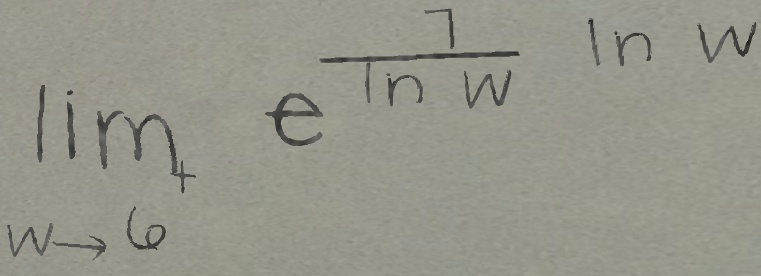 lim_{w→6^+} e^{\frac{7}{ln w} ln w}